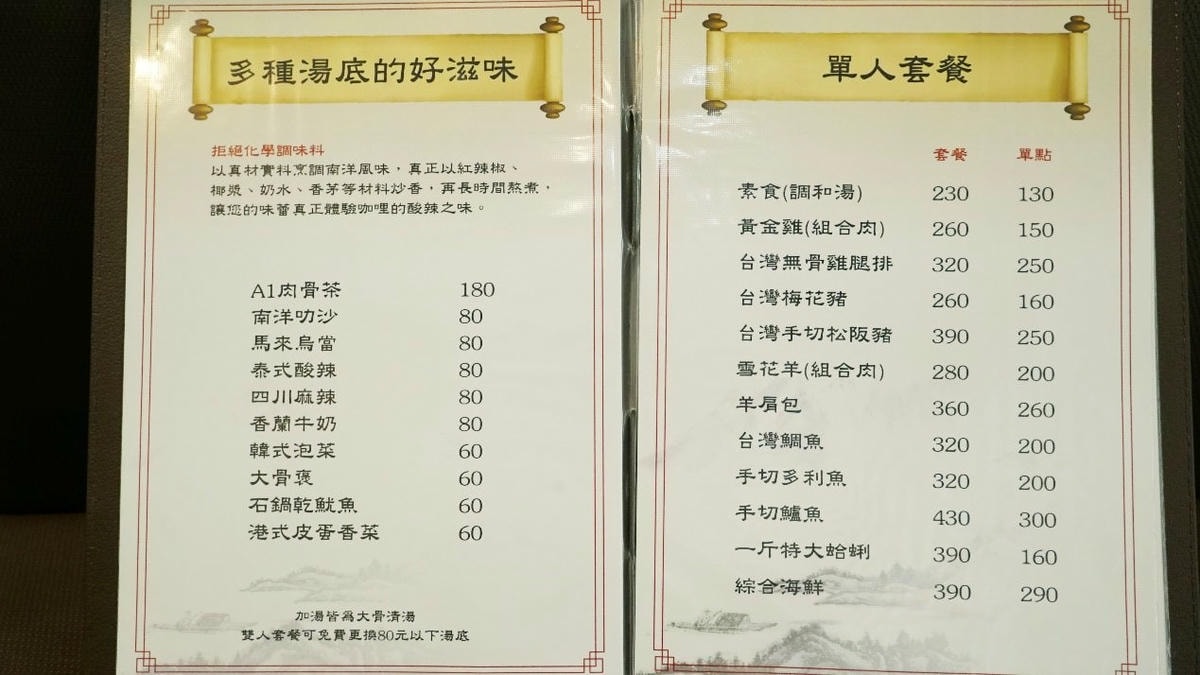 多種湯底的好滋味
拒絕化學調味料
以真材實料烹調南洋風味，真正以紅辣椒、
椰漿、奶水、香茅等材料炒香，再長時間熬煮，
讓您的味蕾真正體驗咖哩的酸辣之味。
A1肉骨茶 180
南洋叻沙 80
馬來烏當 80
泰式酸辣 80
四川麻辣 80
香蘭牛奶 80
韓式泡菜 60
大骨褒 60
石鍋乾魷魚 60
港式皮蛋香菜 60
加湯皆為大骨清湯
雙人套餐可免費更換80元以下湯底
單人套餐
套餐 單點
素食(調和湯) 230 130
黃金雞(組合肉) 260 150
台灣無骨雞腿排 320 250
台灣梅花豬 260 160
台灣手切松阪豬 390 250
雪花羊(組合肉) 280 200
羊肩包 360 260
台灣鯛魚 320 200
手切多利魚 320 200
手切鱸魚 430 300
一斤特大蛤蜊 390 160
綜合海鮮 390 290